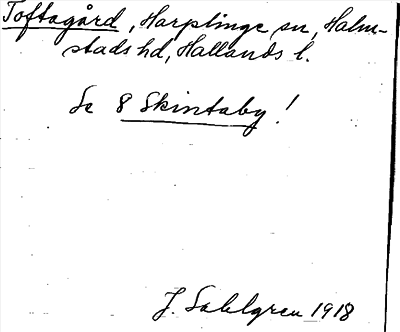 Toftagård, Harplinge sn, Halm-
stads hd, Hallands l.
Se 8 Skintaby!
J. Sahlgren 1918